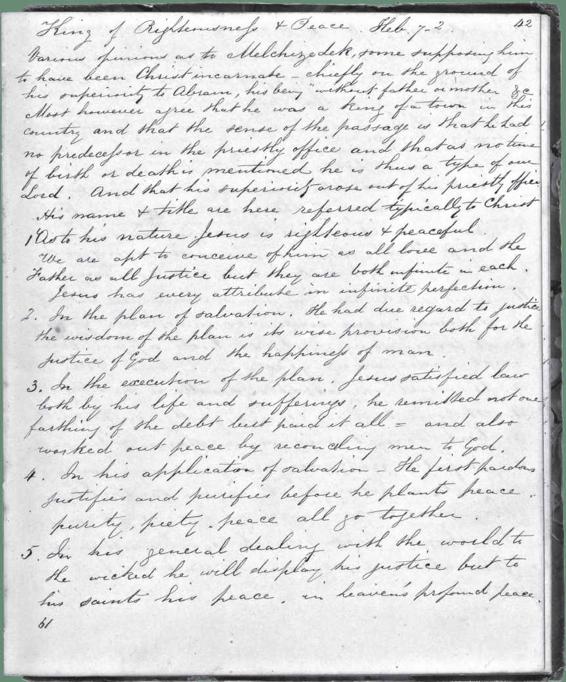 King of Righteousness & Peace. Heb. 7-2. 42
Various opinions as to Melchizedek, some supposing him
to have been Christ incarnate - chiefly on the ground of
his superiority to Abram, his being "without father or mother &c
Most however agree that he was a King of a town in this
country and that the sense of the passage is that he had
no predecessor in the priestly office and that as no time
of birth or death is mentioned he is thus a type of our
Lord. And that his superiority arose out of his priestly office
His name & title are here referred typically to Christ
1 As to his nature Jesus is righteous & peaceful.
We are apt to conceive of him as all love and the
Father as all Justice but they are both infinite in each.
Jesus has every attribute in infinite perfection.
2. In the plan of salvation. He had due regard to justice
the wisdom of the plan is its wise provision both for the
justice of God and the happiness of man.
3. In the execution of the plan. Jesus satisfied law
both by his life and sufferings, he remitted not one
farthing of the debt but paid it all = and also
worked out peace by reconciling men to God.
4. In his application of salvation - He first pardons
justifies and purifies before he plants peace.
purity, piety, peace all go together.
5. In his general dealing with the world to
the wicked he will display his justice but to
his saints his peace. in heaven's profound peace.
61